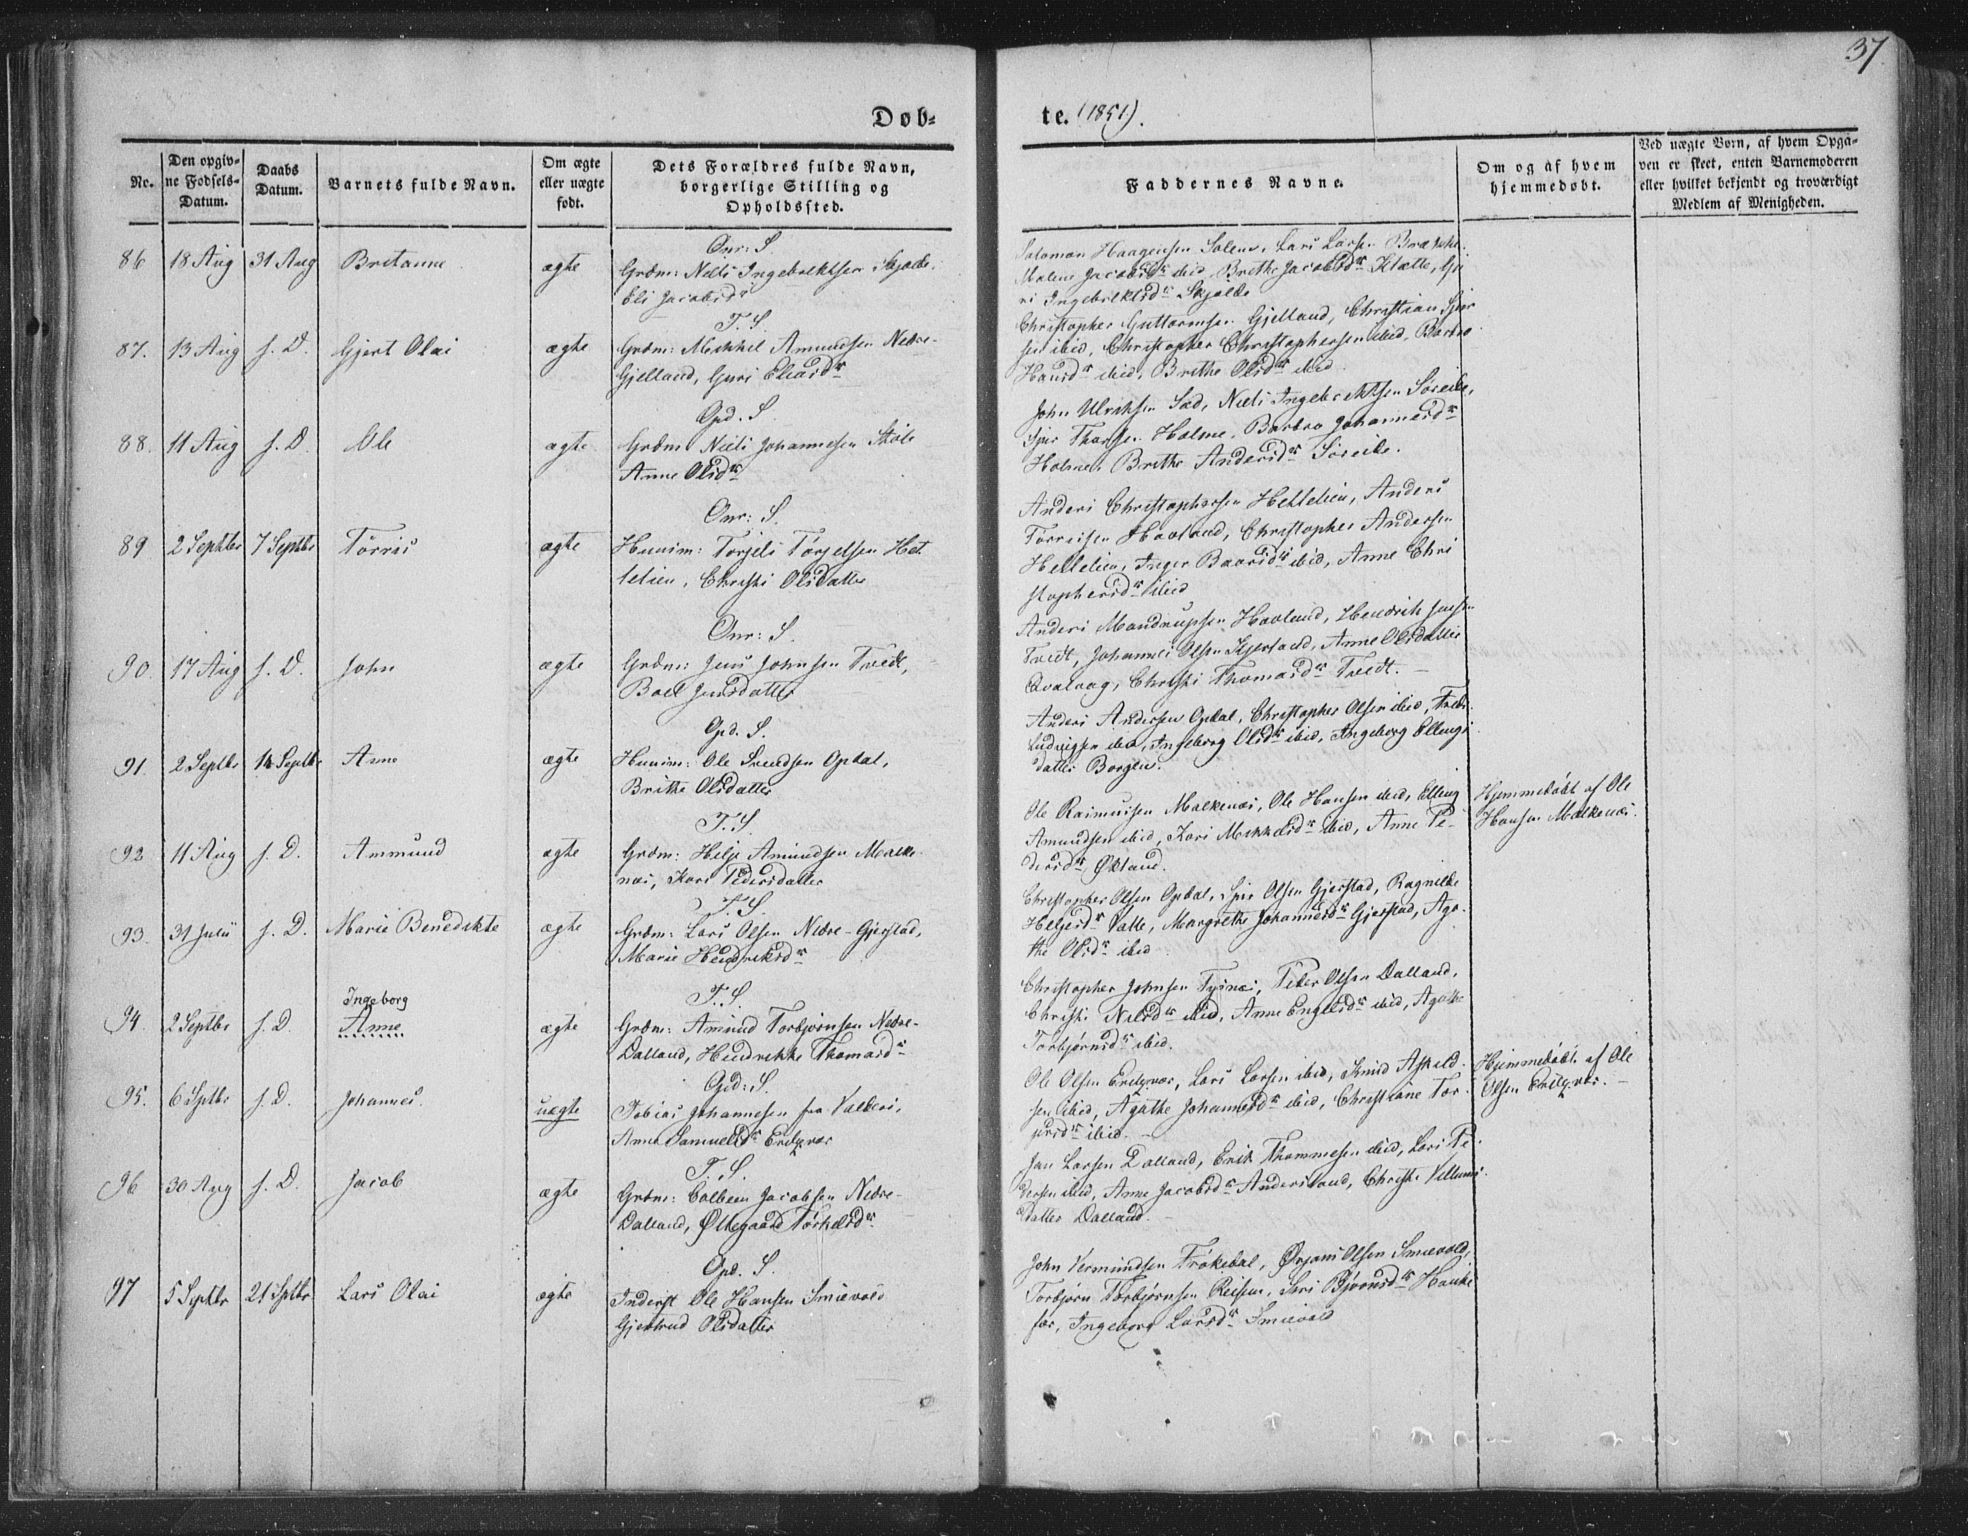 37.
Døb-
te. (1851).
No.
Den opgiv-
ne Fødsels-
Datum.
Daabs
Datum.
Barnets fulde Navn.
Om ægte
eller uægte
født.
Dets Forældres fulde Navn,
borgerlige Stilling og
Opholdssted.
Faddernes Navne.
Om og af hvem
hjemmedøbt.
Ved uægte Børn, af hvem Opga-
ven er skeet, enten Barnemoderen
eller hvilket bekjendt og troværdigt
Medlem af Menigheden.
Onr: S.
86 18 Aug 31 Aug Britanne ægte Grdm: Niels Ingebrektsen Skjelde,
Eli Jacobsdr
Salomon Haagensen Solem, Lars Larsen Brække
Malene Jacobsdr ibid, Brithe Jacobsdr Klætte, Gu
ri Ingebrektsdr Skjelde
T. S.
87. 13 Aug s. D. Gjert Olai ægte Grdm: Mikkel Amundsen Nedre-
Gjelland, Guri Eliasdr
Christopher Guttormsen Gjelland, Christian Sjur
sen ibid, Christopher Christophersen ibid, Barbro
Hansdr ibid, Brithe Olsdr ibid.
Opd. S.
88. 11 Aug s. D. Ole ægte Grdm Niels Johannesen Støle
Anne Olsdr
John Ulriksen Sæd, Niels Ingebrektsen Søreide,
Sjur Thorsen Holme, Barbro Johannesdr
Holme, Brithe Andersdr Søreide.
Onr: S.
89 2 Septbr 7 Septbr Tørris ægte Huusm: Torjels Torjelsen Het
letien, Christi Olsdatter
Anders Christophersen Hetletien, Anders
Torrisen Hovland, Christopher Andersen
Hetletien, Inger Baarsdr ibid, Anne Chri
stophersdr ibid
Onr: S.
90. 17 Aug s. D. John ægte Grdm: Jens Johnsen Tvedt,
Boel Jensdatter
Anders Mandrupsen Hovland, Hendrik Jensen
Tvedt, Johannes Olsen Gjerstad, Anne Olsdatter
Qvalvaag, Christi Thomasdr Tvedt.
Opd. S.
91. 2 Septbr 14 Septbr Arne ægte Huusm: Ole Svendsen Opdal,
Brithe Olsdatter
Anders Andersen Opdal, Christopher Olsen ibid,
Ludvigsen ibid, Ingeborg Olsdr ibid, Ingeborg Ellings
datter Borgen.
T. S.
92 11 Aug s. D. Ammund ægte Grdm: Helje Amundsen Malke
næs, Kari Pedersdatter
Ole Rasmusen Malkenæs, Ole Hansen ibid, Elling
Amundsen ibid, Kari Mikkelsdr ibid, Anne Pe-
dersdr Økland.
Hjemmedøbt af Ole
Hansen Malkenæs.
T. S.
93. 31 Julii s. D. Marie Benedikte ægte Grdm: Lars Olsen Nedre-Gjerstad,
Marie Hendriksdr
Christopher Olsen Opdal, Sjur Olsen Gjerstad, Ragnilde
Heljesdr Vatle, Margrethe Johannesdr Gjerstad, Aga-
the Olsdr ibid
T. S.
94. 2 Septbr s. D. Ingeborg
Anne ægte Grdm: Amund Torbjørnsen Nedre-
Dalland, Hendrikke Thomasdr
Christopher Johnsen Tysnæs, Peder Olsen Dalland,
Christi Nielsdr ibid, Anne Engelsdr ibid, Agathe
Torbjørnsdr ibid.
Opd: S.
95. 6 Septbr s. D. Johannes. uægte Tobias Johannesen fra Valders,
Anna Samuelsdr
Ole Olsen, Lars Larsen ibid, Knud Askild
sen ibid, Agathe Johannesdr ibid, Christiane Tor-
ibid.
Hjemmedøbt af Ole
Olsen
T. S.
96 30 Aug s. D. Jacob ægte Grdm: Colbein Jacobsen Nedre-
Dalland, Øllegaard Torkelsdr
Jan Larsen Dalland, Erik Thommesen ibid, Lars Pe
dersen ibid, Anne Jacobsdr Andersland, Christi Villums
datter Dalland.
Opd. S.
97 5 Septbr 21 Septbr Lars Olai ægte Inderst Ole Hansen Smievold
Gjertrud Olsdatter
John Vermundsen Frøkedal, Ørjans Olsen Smievold,
Torbjørn Torbjørnsen Reisen, Siri Bjørnsdr Hauke
før, Ingeborg Larsdr Smievold